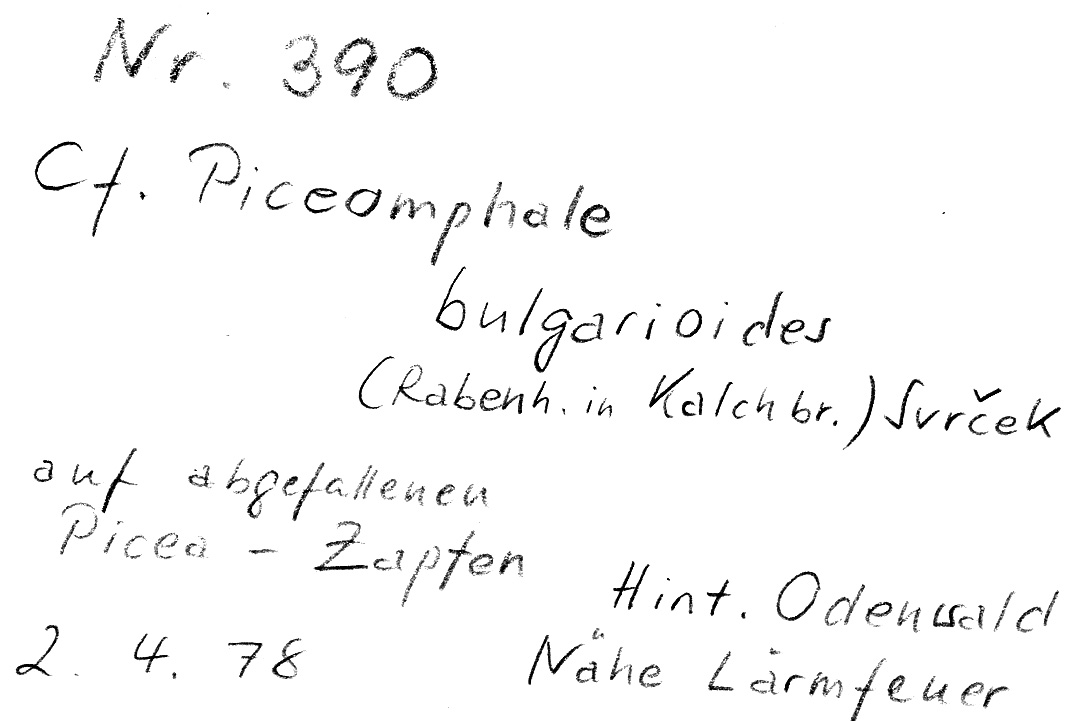 Nr. 390
Cf. Piceomphale
bulgarioides
(Rabenh. in Kalchbr.) Svrček
auf abgefallenen
Picea - Zapfen
Hint. Odenwald
2. 4. 78
Nähe Lärmfeuer